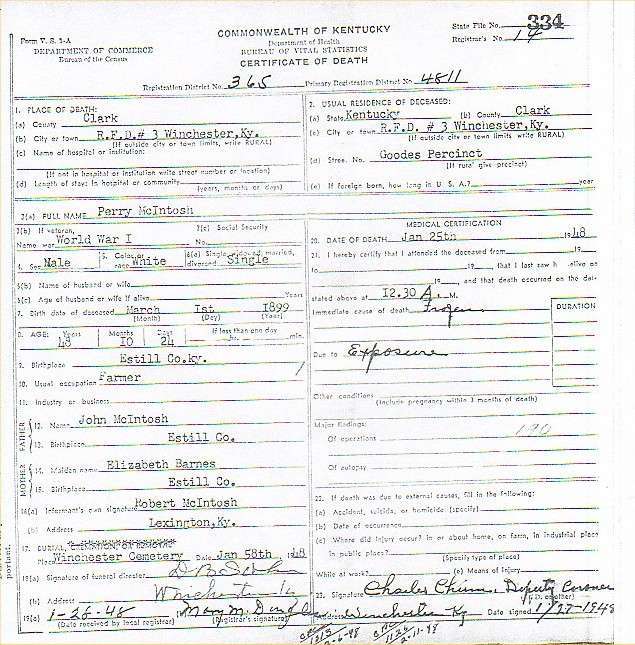 Form V. S. 1-A
DEPARTMENT OF COMMERCE
Bureau of the Census
COMMONWEALTH OF KENTUCKY
Department of Health
BUREAU OF VITAL STATISTICS
CERTIFICATE OF DEATH
State File No. 334
Registrar's No. 14
Registration District No. 365 Primary Registration District No. 4811
1. PLACE OF DEATH:
(a) County Clark
(b) City or town R.F.D.# 3 Winchester,Ky.
(If outside city or town limits, write RURAL)
(c) Name of hospital or institution:
(If not in hospital or institution write street number or location)
(d) Length of stay: In hospital or community
(years, months or days)
2. USUAL RESIDENCE OF DECEASED:
(a) State Kentucky (b) County Clark
(c) City or town R.F.D. # 3 Winchester,Ky.
(If outside city or town limits, write RURAL)
(d) Stree. No. Goodes Percinct
(If rural give precinct)
(e) If foreign born, how long in U. S. A.? year
3(a) FULL NAME Perry McIntosh
3(b) If veteran, 3(c) Social Security
Name war World War I No.
4. Sex Male 5. Color or race White 6(a) Single, widowed, married, divorced Single
6(b) Name of husband or wife
6(c) Age of husband or wife if alive Years
7. Birth date of deceased March 1st 1899
(Month) (Day) (Year)
8. AGE: Years Months Days If less than one day
48 10 24 hr. min.
9. Birthplace Estill Co.ky.
10. Usual occupation Farmer
11. Industry or business
FATHER
12. Name John McIntosh
13. Birthplace Estill Co.
MOTHER
14. Maiden name Elizabeth Barnes
15. Birthplace Estill Co.
16(a) Informant's own signature Robert McIntosh
(b) Address Lexington,Ky.
17. BURIAL, CREMATION OR REMOVAL
Place Winchester Cemetery Date Jan 58th 1948
18(a) Signature of funeral director
(b) Address Winchester Ky
19(a) 1-28-48 (b) Mary M.
(Date received by local registrar) (Registrar's signature)
MEDICAL CERTIFICATION
20. DATE OF DEATH Jan 25th 1948
21. I hereby certify that I attended the deceased from 19
to 19 , that I last saw h alive on
19 , and that death occurred on the date
stated above at 12.30 A. M.
Immediate cause of death Frozen
DURATION
Due to Exposure
Other conditions
(Include pregnancy within 3 months of death)
Major findings:
Of operations
190
Of autopsy
22. If death was due to external causes, fill in the following:
(a) Accident, suicide, or homicide (specify)
(b) Date of occurrence
(c) Where did injury occur? in or about home, on farm, in industrial place
in public place?
(Specify type of place)
While at work? (e) Means of injury
23. Signature Charles Chism, Deputy Coroner
(M.D. or other)
Address Winchester Ky Date signed 1/27-1948